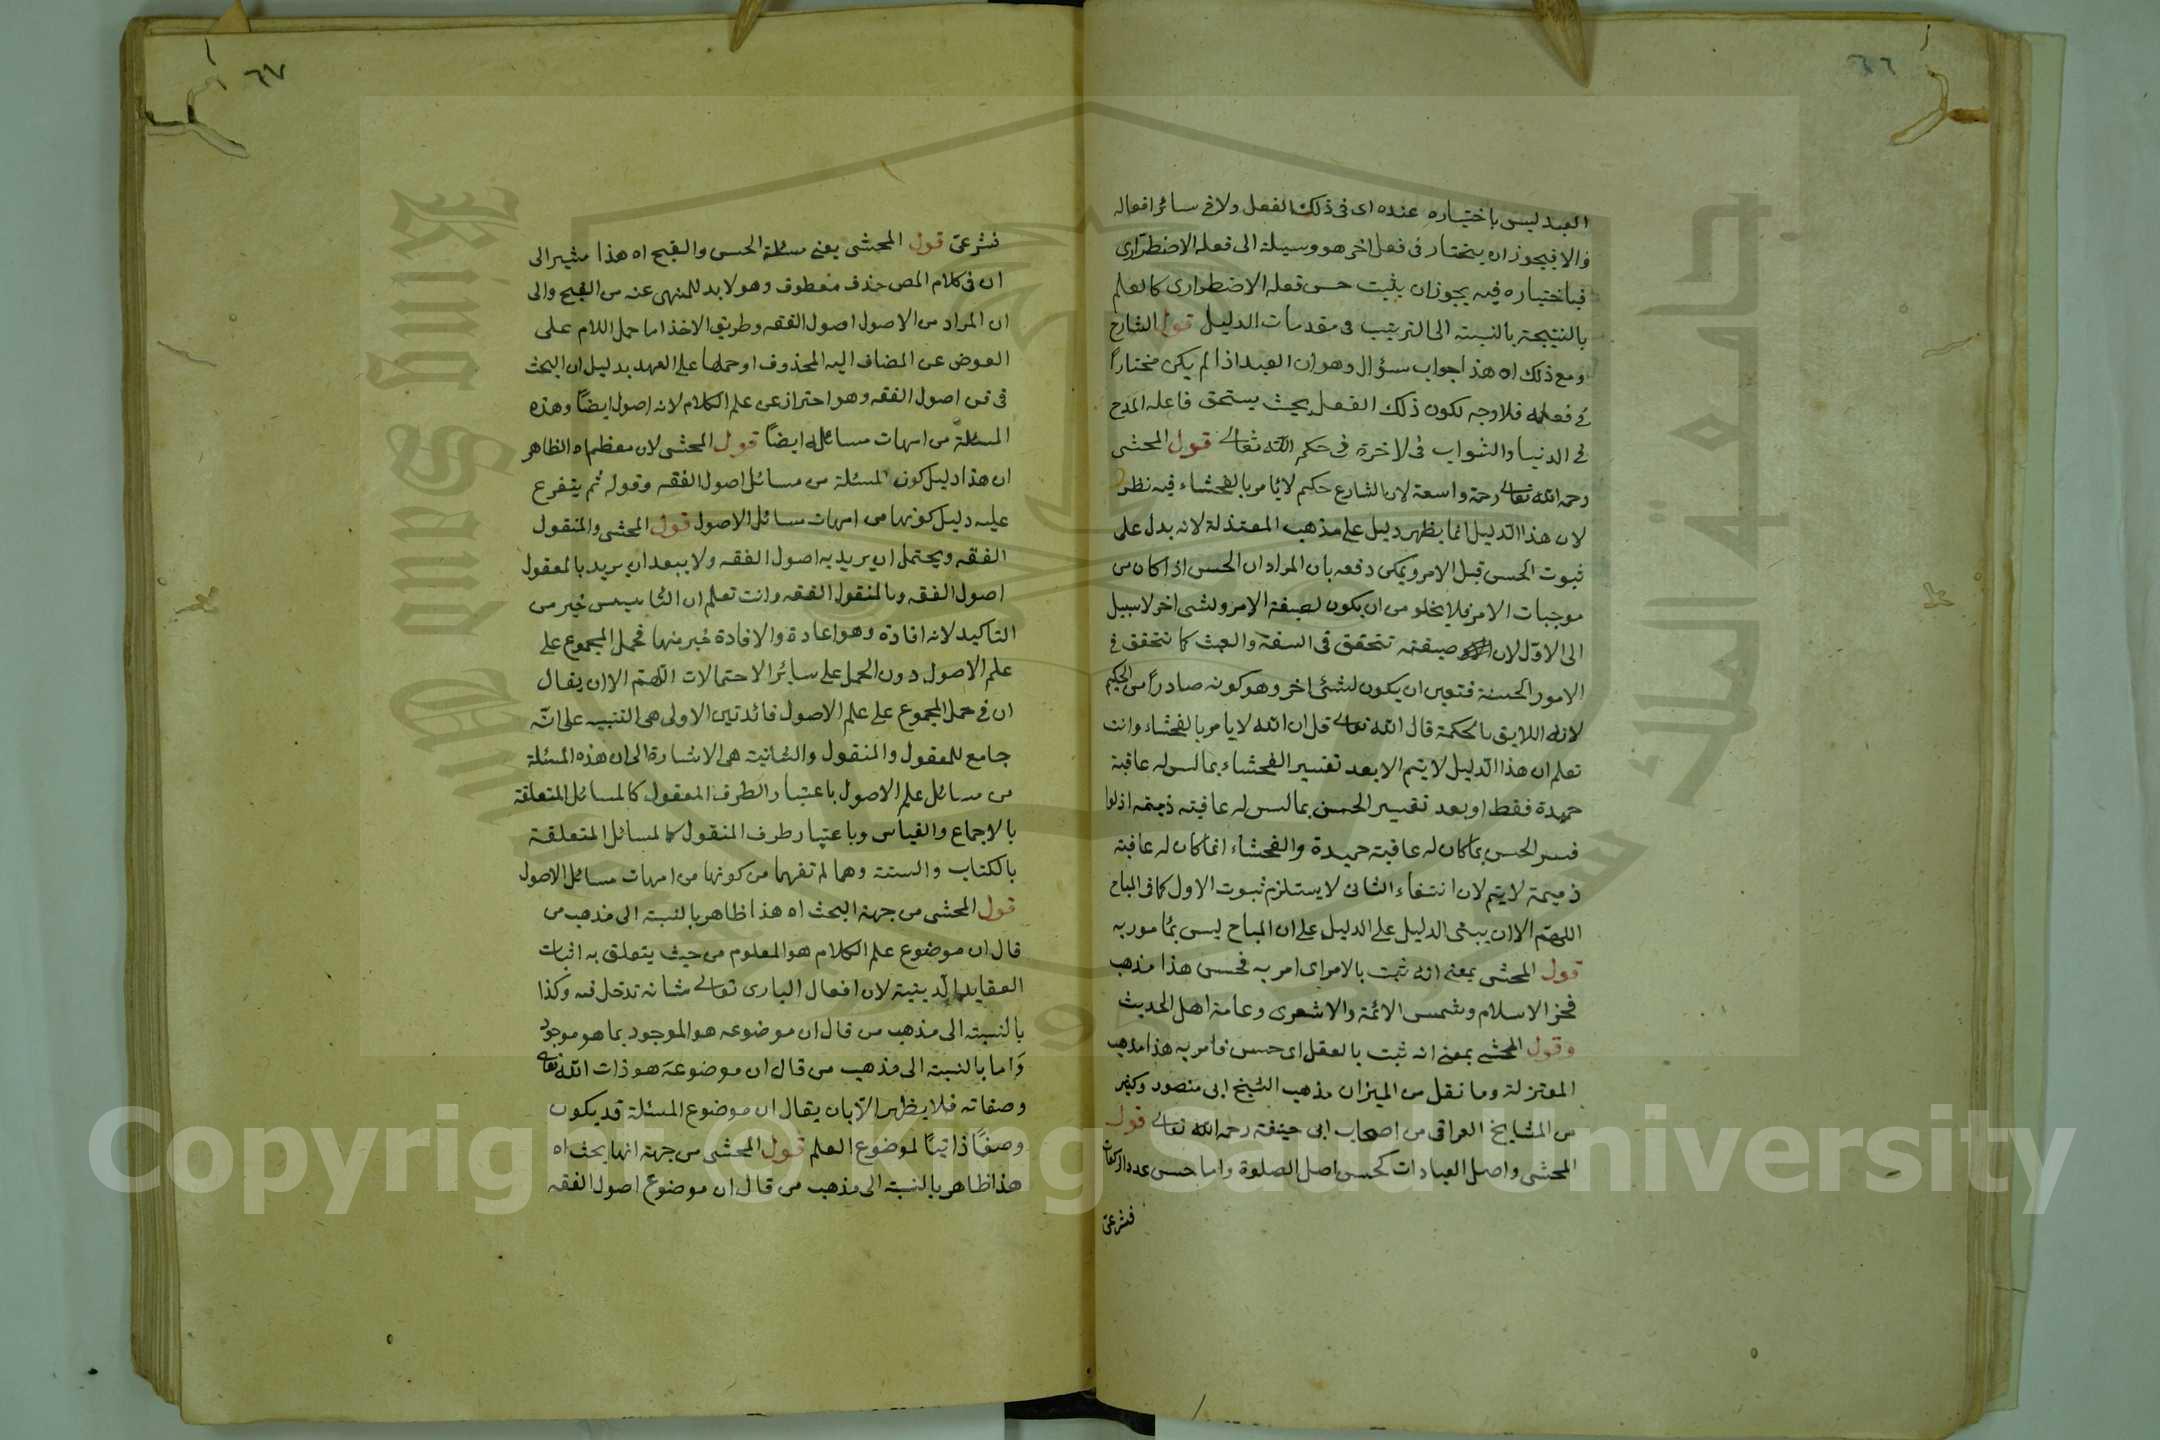 ٦٦
العبد ليس باختياره عنده اى فى ذلك الفعل ولا فى سائر افعاله
والا فيجوز ان يختار فى فعل اخر هو وسيلة الى فعله الاضطرارى
فباختياره فيه يجوز ان يثبت حسن فعله الاضطرارى كالعلم
بالنتيجة بالنسبة الى الترتيب فى مقدمات الدليل قول الشارح
ومع ذلك اه هذا جواب سؤال وهو ان العبد اذا لم يكن مختاراً
فى فعله فلا وجه لكون ذلك الفعل بحيث يستحق فاعله المدح
فى الدنيا والثواب فى لاخرة فى حكم الله تعالى قول المحشى
رحمه الله تعالى رحمة واسعة لان الشارع حكيم لا يامر بالفحشاء فيه نظر
لان هذا الدليل انما يظهر دليل على مذهب المعتذلة لانه يدل على
ثبوت الحسن قبل الامر ويمكن دفعه بان المراد ان الحسن اذا كان من
موجبات الامر فلا يخلو من ان يكون لصيغة الامر ولشى اخر لا سبيل
الى الاول لان صيغته تتحقق فى السفه والعبث كما تتحقق فى
الامور الحسنة فتعين ان يكون لشئ اخر وهو كونه صادراً من الحكيم
لانه اللايق بالحكمة قال الله تعالى قل ان الله لا يامر بالفحشاء وانت
تعلم ان هذا الدليل لا يتم الا بعد تفسير الفحشاء بما ليس له عاقبة
حميدة فقط او بعد تفسير الحسن بما ليس له عاقبة ذميمة اذ لو
فسر الحسن بما كان له عاقبة حميدة والفحشاء انما كان له عاقبة
ذميمة لا يتم لان انتفاء الثانى لا يستلزم ثبوت الاول كما فى المباح
اللهم الا ان يبنى الدليل على الدليل على ان المباح ليس بمامور به
قول المحشى بمعنى انه ثبت بالامر اى امر به فحسن هذا مذهب
فخر الاسلام وشمس الائمة والاشعرى وعامة اهل الحديث
وقول المحشى بمعنى انه ثبت بالعقل اى حسن فامر به هذا مذهب
المعتزلة وما نقل من الميزان مذهب الشيخ ابى منصور وكثير
من المشايخ العراقى من اصحاب ابى حنيفة رحمه الله تعالى قول
المحشى واصل العبادات كحسن اصل الصلوة واما حسن عدد الركعات
فشرعى
٦٧
فشرعى قول المحشى يعنى مسئلة الحسن والقبح اه هذا مشير الى
ان فى كلام المص حذف معطوف وهو لا بد للمنهى عنه من القبح والى
ان المراد من الاصول اصول الفقه وطريق الاخذ اما حمل اللام على
العوض عن المضاف اليه المحذوف او حملها على العهد بدليل ان البحث
فى فن اصول الفقه وهو احتراز عن علم الكلام لانه اصول ايضاً وهذه
المسئلة من امهات مسائله ايضاً قول المحشى لان معظم اه الظاهر
ان هذا دليل كون المسئلة من مسائل اصول الفقه وقوله ثم يتفرع
عليه دليل كونها من امهات مسائل الاصول قول المحشى والمنقول
الفقه ويحتمل ان يريد به اصول الفقه ولا يبعد ان يريد بالمعقول
اصول الفقه وبالمنقول الفقه وانت تعلم ان التاسيس خير من
التاكيد لانه افادة وهو اعادة والافادة خير منها فحمل المجموع على
علم الاصول دون الحمل على سائر الاحتمالات اللهم الا ان يقال
ان فى حمل المجموع على علم الاصول فائدتين الاولى هى التنبيه على انه
جامع للمعقول والمنقول والثانية هى الاشارة الى ان هذه المسئلة
من مسائل علم الاصول باعتبار الطرف المعقول كالمسائل المتعلقة
بالاجماع والقياس وباعتبار طرف المنقول كالمسائل المتعلقة
بالكتاب والسنة وهما لم تفهما من كونها من امهات مسائل الاصول
قول المحشى من جهة البحث اه هذا ظاهر بالنسبة الى مذهب من
قال ان موضوع علم الكلام هو المعلوم من حيث يتعلق به اثبات
العقايد الدينية لان افعال البارى تعالى شانه تدخل فيه وكذا
بالنسبة الى مذهب من قال ان موضوعه هو الموجود بما هو موجود
واما بالنسبة الى مذهب من قال ان موضوعه هو ذات الله تعالى
وصفاته فلا يظهر الا بان يقال ان موضوع المسئلة قد يكون
وصفاً ذاتياً لموضوع العلم قول المحشى من جهة انها يحث اه
هذا ظاهر بالنسبة الى مذهب من قال ان موضوع اصول الفقه
جامعة الملك سعود
King Saud University
Copyright © King Saud University